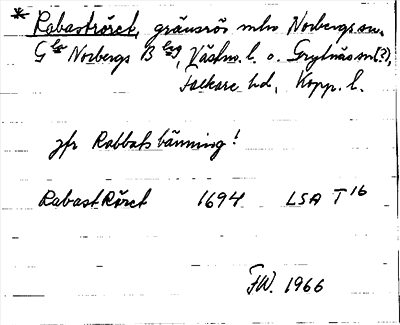 * Rabaströret, gränsrös mln Norbergs sn,
G la Norbergs B lag, Västm. l. o. Grytnäs sn (?),
Folkare hd, Kopp. l.
jfr Rabbatsbänning!
RabastRöret 1694 LSA T 16
FW. 1966